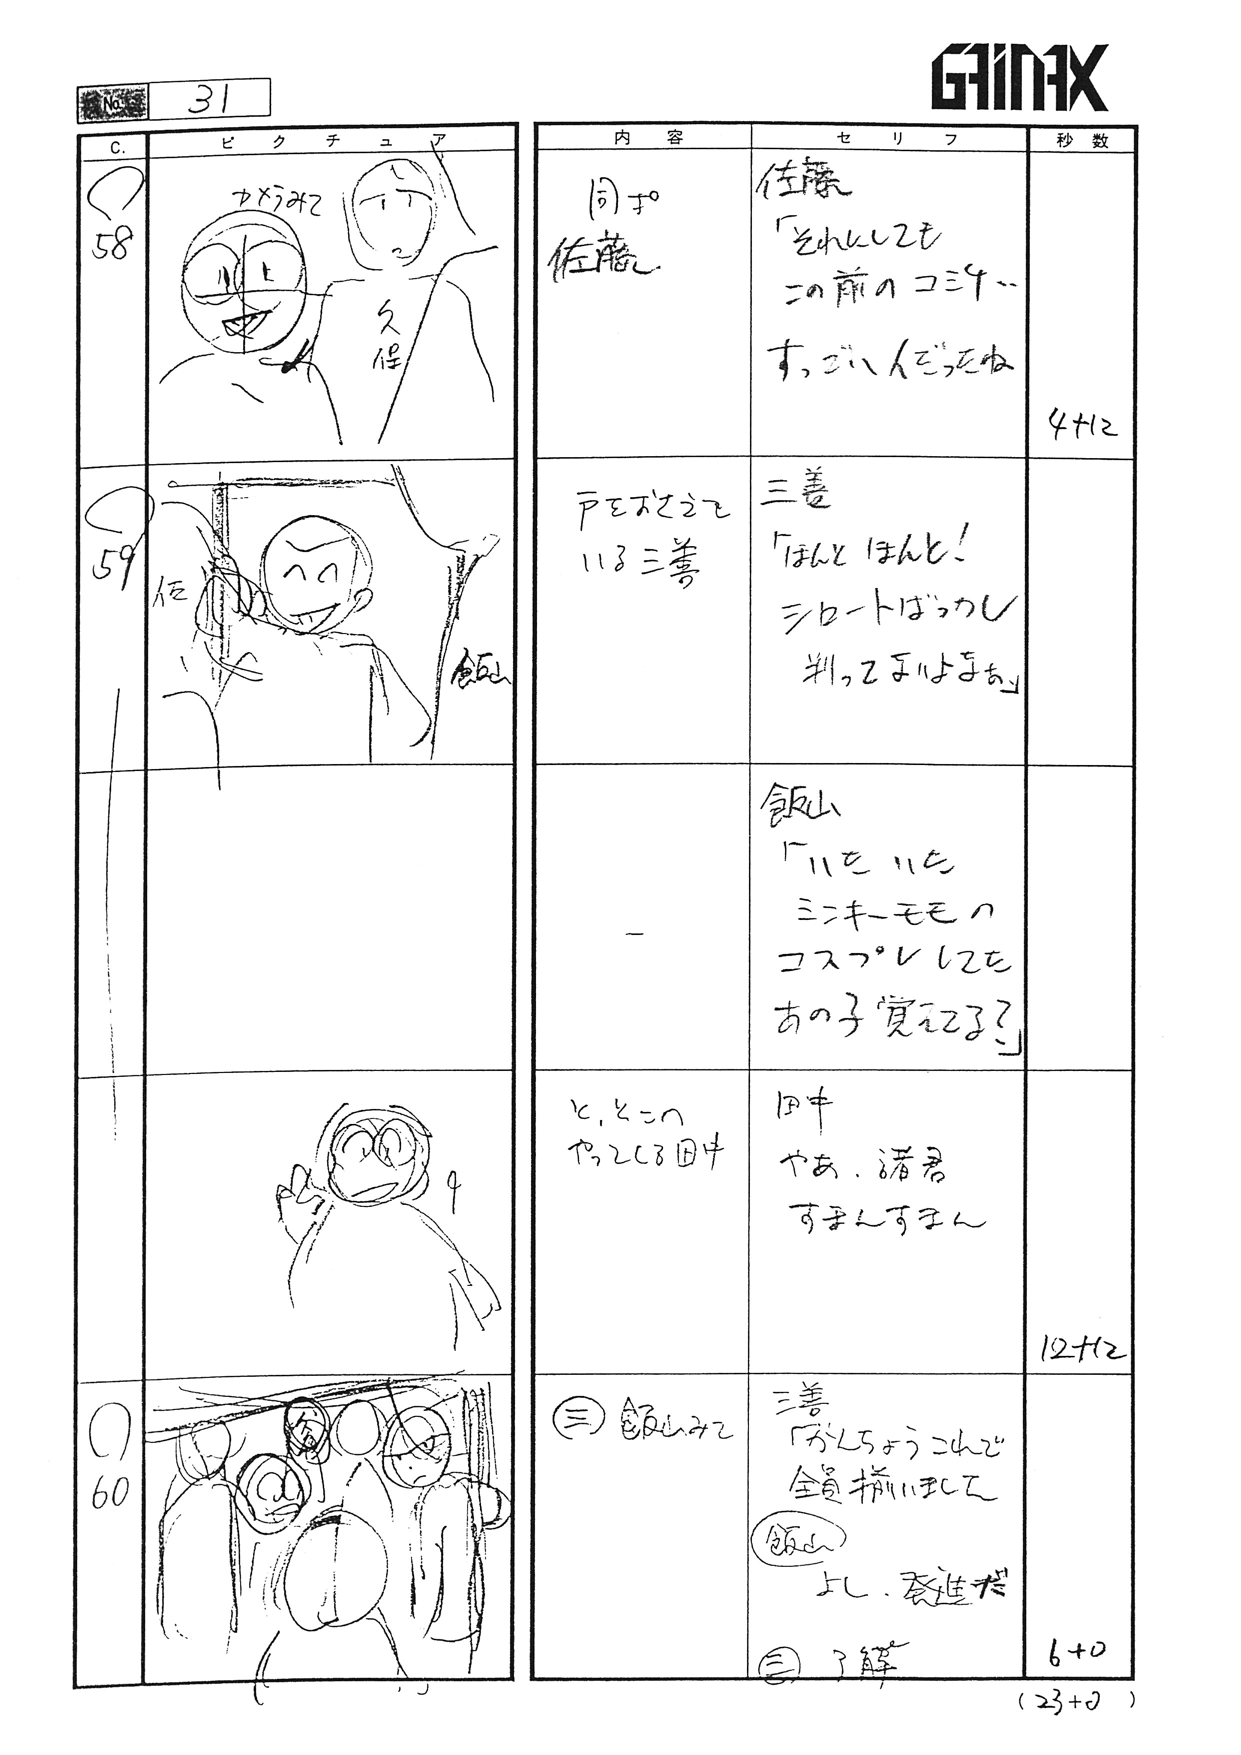 GAINAX
No. 31
C.
ピクチュア
内容
セリフ
秒数
58
カメラみて
久保
同ポ
佐藤
佐藤
「それにしても
この前のコミケ‥
すっごいんだったね
4+12
59
佐
飯山
戸をおさえて
いる三善
三善
「ほんと ほんと!
シロートばっかし
判ってないよなぁ」
飯山
「いた いた
ミンキーモモの
コスプレしてた
あの子覚えてる?」
と、そこへ
やってくる田中
田中
やあ、諸君
すまんすまん
12+12
60
三 飯山みて
三善
「かんちょうこれで
全員揃いました
飯山
よし、発進だ
三 了解
6+0
(23+0)